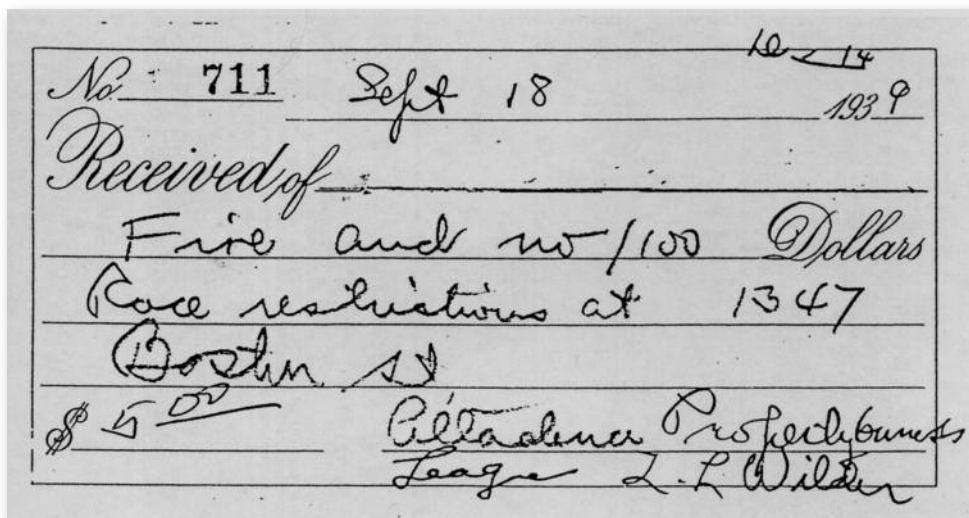 No. 711 Sept 18 1939
Received of
Five and no/100 Dollars
Race restrictions at 1347
Boston st
$ 5 00 Altadena Property Owners
League L. L Wilder